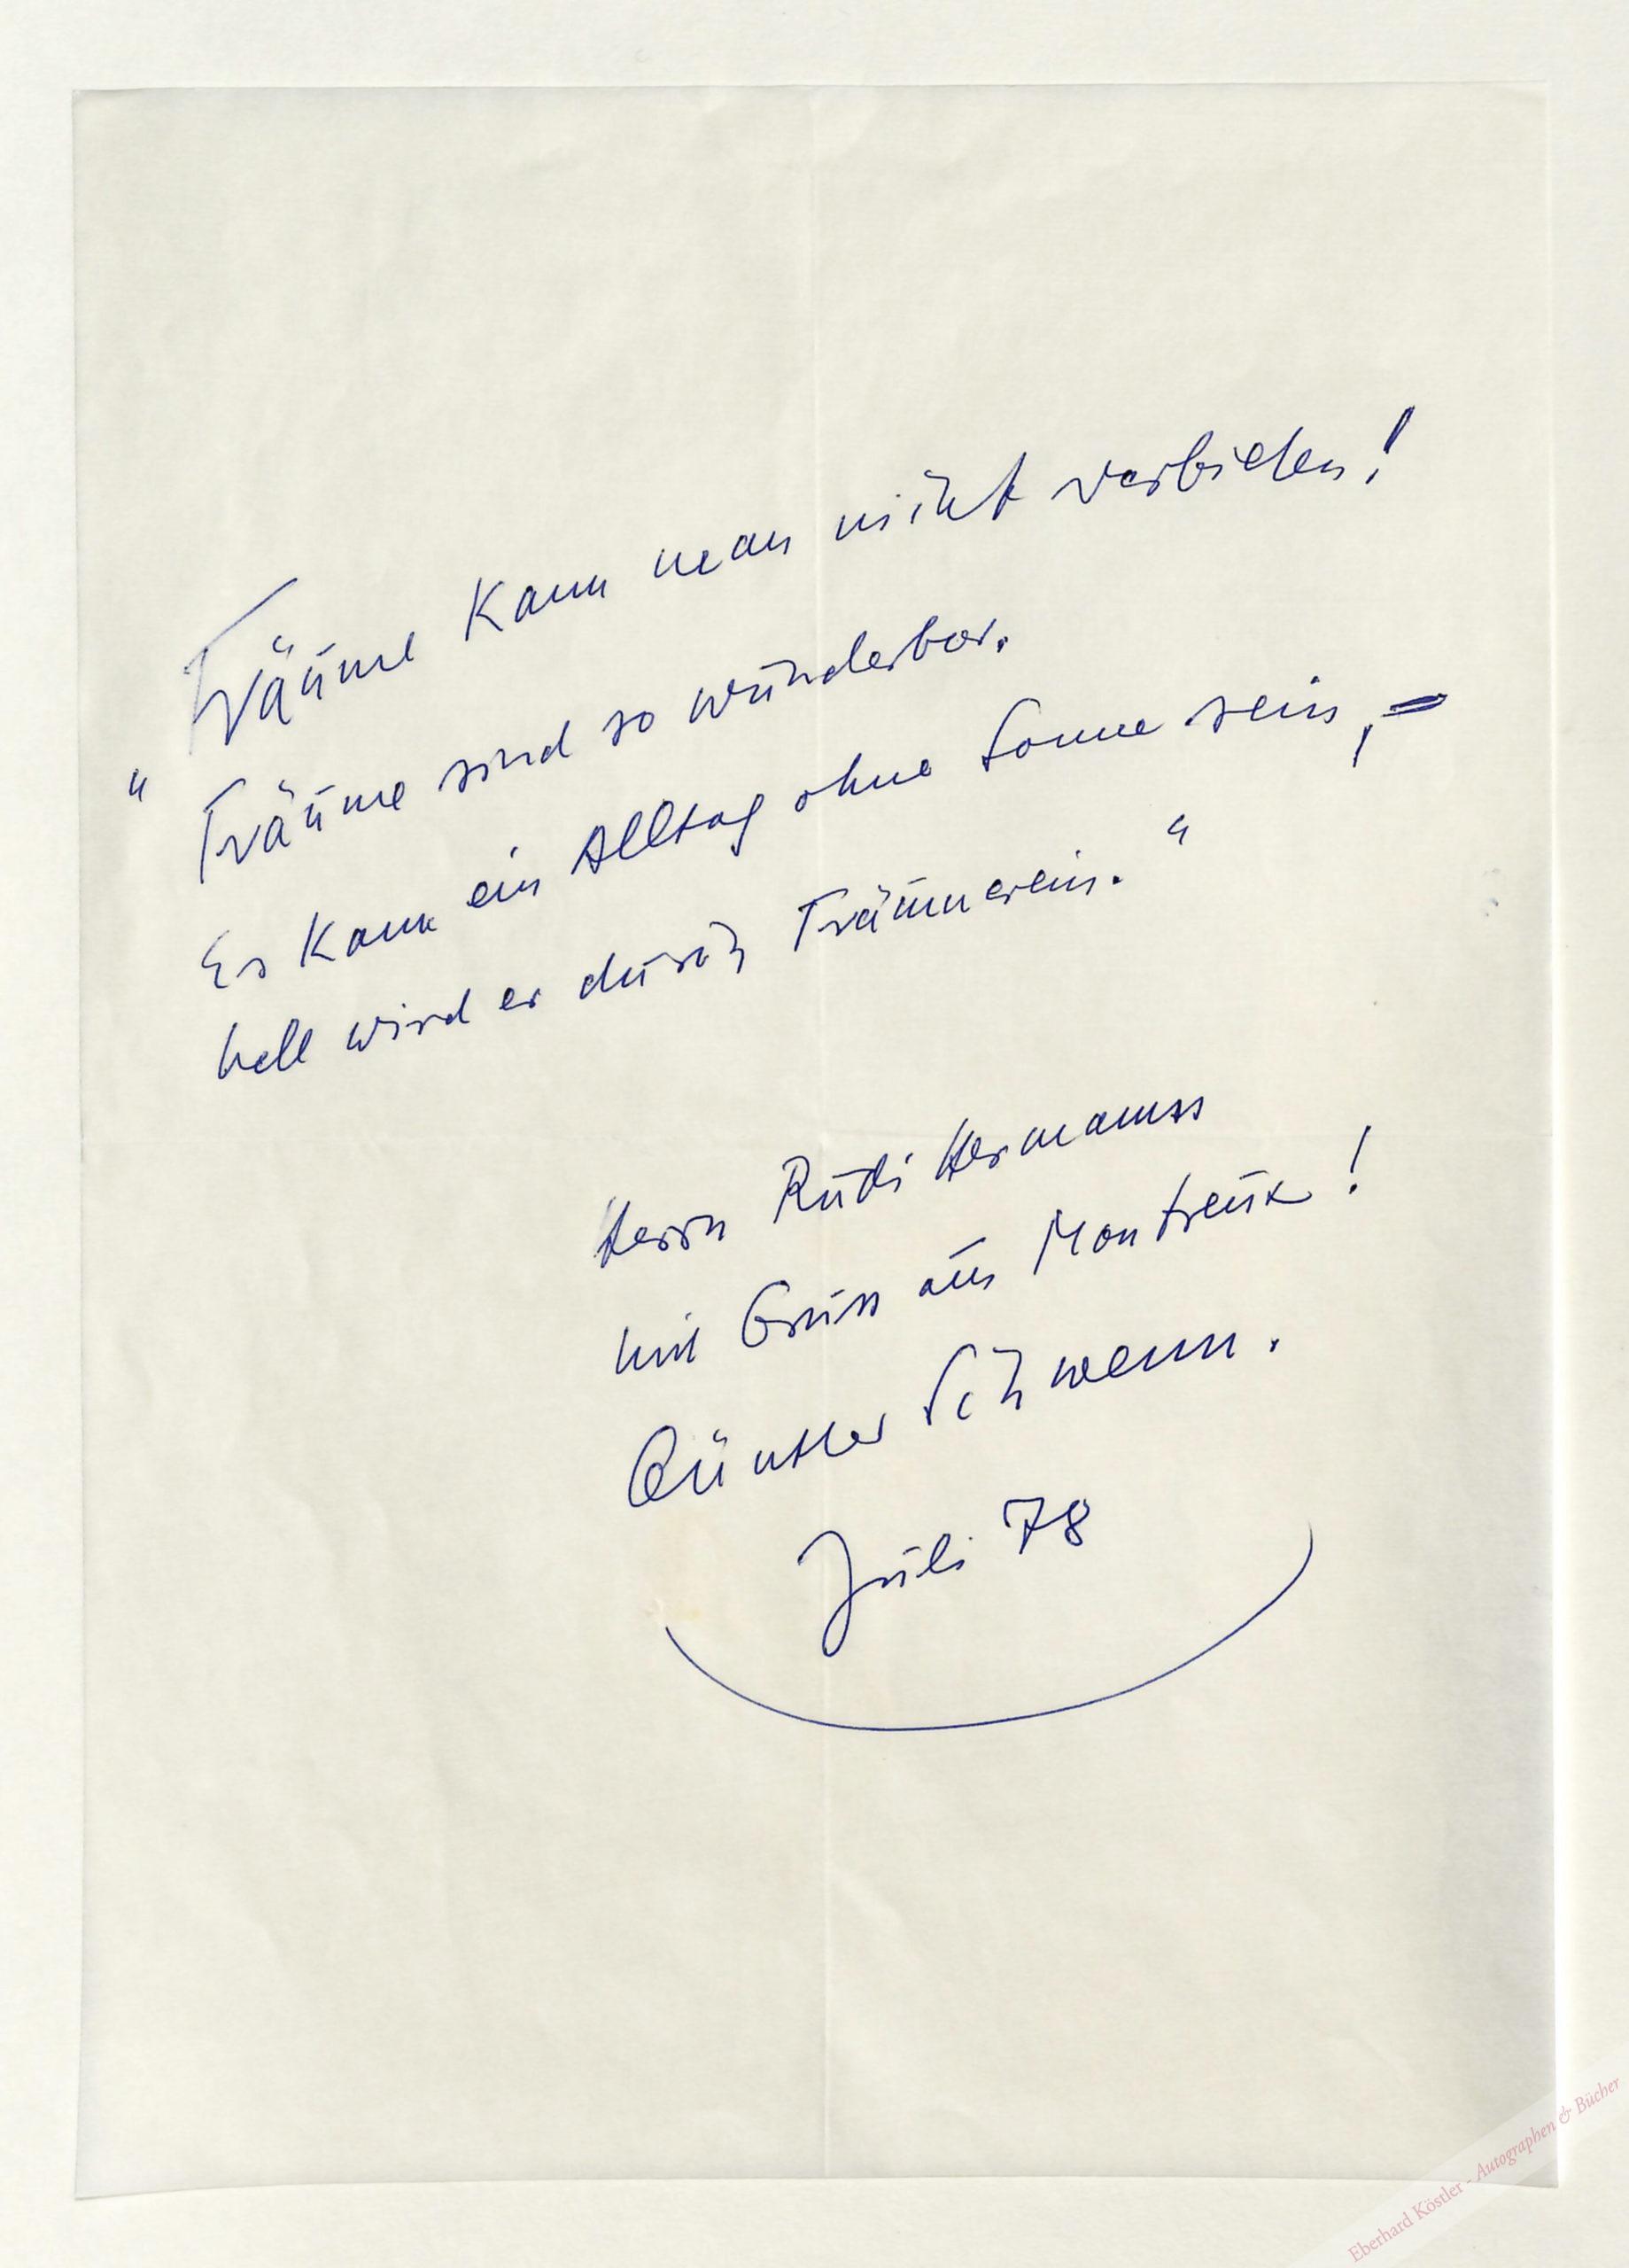 Träume kann man nicht verbieten!
" Träume sind so wunderbar.
Es kann ein Alltag ohne Sonne sein, –
hell wird er durch Träumerein. "
Herrn Rudi Hermanns
mit Gruss aus Montreux!
Günther Schwenn.
Juli 78
Eberhard Köstler - Autographen & Bücher